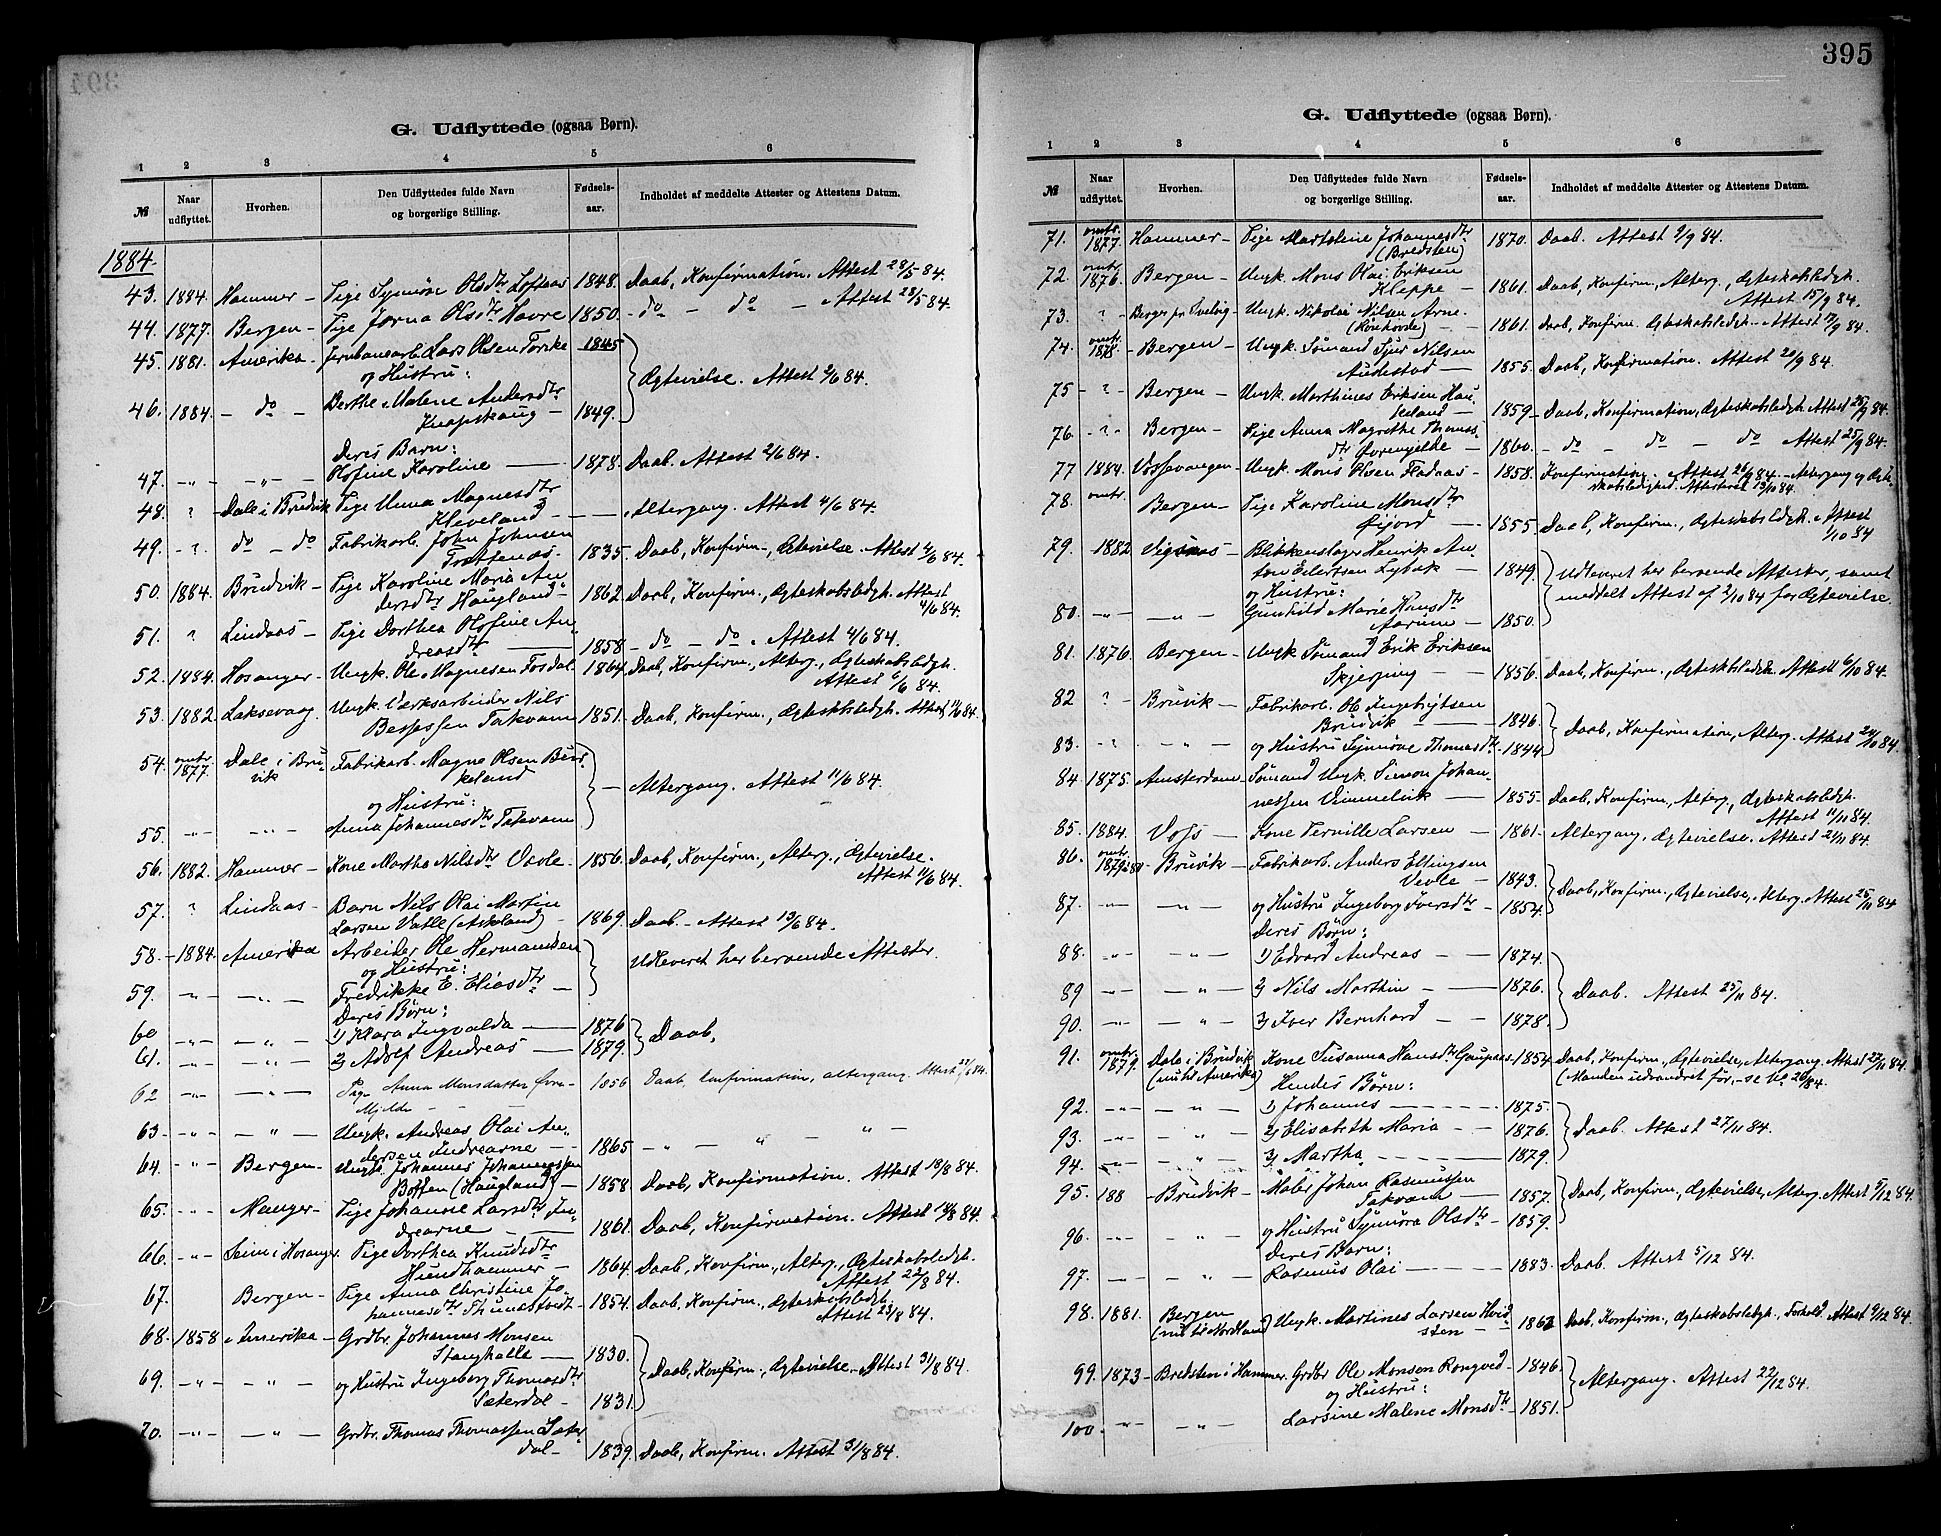 395
G. Udflyttede (ogsaa Børn).
1 2 3 4 5 6
№ Naar udflyttet. Hvorhen. Den Udflyttedes fulde Navn og borgerlige Stilling. Fødsels-aar. Indholdet af meddelte Attester og Attestens Datum.
1884
43. 1884. Hammer – Pige Synnöve Olsdtr Loftaas 1848. Daab, Konfirmation. Attest 28/5 84.
44. 1877. Bergen – Pige Jorna Olsdtr Havre 1850. – do – do – Attest 28/5 84.
45. 1881. Amerika – Jernbanearb. Lars Olsen Torske 1845
og Hustru: } Ægtevielse. Attest 2/6 84.
46. 1884. – do – Berthe Malene Andersdtr
Knapskaug – 1849.
Deres Barn:
47. – " – – " – Olofine Karoline – 1878. Daab. Attest 2/6 84.
48. ? Dale i Brudvik Pige Unna Magnesdtr
Kleveland – – Altergang. Attest 4/6 84.
49. – ? – do – do Fabrikarb. John Johnsen
Trættenæs – 1835. Daab, Konfirm., Ægtevielse. Attest 4/6 84.
50. 1884. Brudvik – Pige Karoline Maria An-
dersdtr Haugland 1862. Daab, Konfirm., Ægteskabsledgh. Attest
4/6 84.
51. ? Lindaas – Pige Dorthea Olofine An-
dreasdtr – 1858 – do – do. Attest 4/6 84.
52. 1884. Hosanger – Ungk. Ole Magnesen Fosdal 1864. Daab, Konfirm., Alterg., Ægteskabsledgh.
Attest 6/6 84.
53. 1882. Laksevaag. Ungk. Værksarbeider Nils
Bergesen Takvam 1851. Daab, Konfirm., Ægteskabsledgh. Attest 11/6 84.
54. omtr. 1877. Dale i Bru-
vik Fabrikarb. Magne Olsen Bur-
keland
og Hustru: } – Altergang. Attest 11/6 84.
55. – " – – " – Anna Johannesdtr Takvam
56. 1882. Hammer – Kone Martha Nilsdtr Vevle – 1856. Daab, Konfirm., Alterg., Ægtevielse.
Attest 11/6 84.
57. ? Lindaas – Barn Nils Olai Martin
Larsen Vatle (Askeland) – 1869. Daab. – Attest 13/6 84.
58. – 1884. Amerika Arbeider Ole Hermansen
og Hustru: } Udleveret her beroende Attester.
59. – " – – " – Fredrikke E. Eliasdtr –
Deres Børn:
60 – " – – " – 1) Klara Ingvalda – 1876
61. – " – – " – 2) Adolf Andreas – 1879. } Daab.
62 – " – – " – Pige Anna Monsdatter Øvre-
Mjelde – – 1856 Daab, konfirmation, altergang. Attest 27/6 84.
63 – – " – – " – Ungk. Andreas Olai An-
dersen Indrearne – – 1865 – " – " – " –
64. – " – Bergen – Ungk. Johannes Johannessen
Botten (Haugland) – 1858 Daab, Konfirmation. Attest 18/8 84.
65. – " – Manger – Pige Johanne Larsdtr In-
drearne – 1861. Daab, Konfirmation. Attest 18/8 84.
66 – " – Seim i Hosanger. Pige Dorthea Knudsdtr
Hundhammer – 1864. Daab, Konfirm., Alterg., Ægteskabsledgh.
Attest 22/8 84.
67. Bergen – Pige Anna Christine Jo-
hannesdtr Thunestvedt – 1854. Daab, Konfirm., Ægteskabsledgh.
Attest 23/8 84.
68. 1858 Amerika – Grdbr. Johannes Monsen
Stanghelle – 1830.
69. – " – – " – og Hustru Ingeborg Thomasdtr } Daab, Konfirm., Ægtevielse – Attest 31/8 84.
Sæterdal – 1831.
70. – " – – " – Grdbr. Thomas Thomassen Sæter-
dal – 1839. Daab, Konfirm. Attest 31/8 84.
G. Udflyttede (ogsaa Børn).
1 2 3 4 5 6
№ Naar udflyttet. Hvorhen. Den Udflyttedes fulde Navn og borgerlige Stilling. Fødsels-aar. Indholdet af meddelte Attester og Attestens Datum.
71. omtr. 1877. Hammer – Pige Martoline Johannesdtr
(Bredsten) 1870. Daab. Attest 9/9 84.
72. omtr. 1876. Bergen – Ungk. Mons Olai Eriksen
Kleppe – 1861. Daab, Konfirm., Alterg., Ægteskabsledgh.
Attest 15/9 84.
73. ? – Ungk. Nikolai Nilsen Arne
– 1861. Daab, Konfirm. Ægteskabsledgh. – Attest 17/9 84.
74. omtr. 1878. – Bergen – Ungk. Sömand Sjur Nilsen
Audestad – 1855. Daab, Konfirmation. Attest 20/9 84.
75 – ? – Bergen – Ungk. Marthines Eriksen Hau-
keland – 1859 – Daab, Konfirmation, Ægteskabsledgh. Attest 25/9 84.
76. – ? – Bergen – Pige Anna Magrethe Thomas-
dtr Øvremjelde – 1860. – do – do – do Attest 25/9 84.
77 1884. Vossevangen – Ungk. Mons Olsen Fladaas – 1858. Konfirmation. Attest 26/9 84. – Altergang og Ægte-
skabsledighed. Attesteret 13/10 84.
78. omtr. Bergen – Pige Karoline Monsdtr
Øijord – 1855. Daab, Konfirm., Ægteskabsledgh. Attest
1/10 84
79. 1882 Vigsnæs – Blikkenslager Henrik An-
ton Eilertsen Lybæk – 1849. } Udleveret her beroende Attester, samt
og Hustru: meddelt Attest af 2/10 84 for Ægtevielse.
80. – " – – " – Gunhild Marie Hansdtr
Aarum – 1850.
81. 1876. Bergen – Ungk. Sömand Erik Eriksen
Skjerping – – 1856. Daab, Konfirm., Ægteskabsledgh. Attest 6/10 84.
82 ? – Bruvik – Fabrikarb. Ole Ingebrigtsen
Brudvik – 1846. } Daab, Konfirmation, Alterg. Attest 24/10 84.
83. – ? – – " – og Hustru Synnöve Thomasdtr – 1844
84 1875. Amsterdam – Sömand Ungk. Simon Johan-
nessen Vimmelvik – 1855 – Daab, Konfirm., Alterg., Ægteskabsledgh.
Attest 11/11 84.
85. 1884. Voss – Kone Pernille Larsen – 1861. Altergang. Ægtevielse. Attest 21/11 84.
86. omtr. 1879 à 80 – Bruvik – Fabrikarb. Anders Ellingsen
Vevle – 1843. } Daab, Konfirm., Ægtevielse, Alterg. Attest 25/11 84
87. – " – – " – og Hustru Ingeborg Iversdtr – 1854.
Deres Børn:
88. – " – – " – 1) Edvard Andreas – – 1874.
89 – " – – " – 2) Nils Marthin – 1876. } Daab. Attest 25/11 84.
90. – " – – " – 3) Iver Bernhard – – 1878.
91. omtr. 1879. Dale i Brudvik Kone Susanna Hansdtr Gaupaas – 1854. Daab, Konfirm., Ægtevielse, Altergang. Attest 27/11 84.
(nu til Amerika) Hendes Børn: (Manden udvandret før, – se № 26/84.
92. – " – – " – 1) Johannes – 1875.
93. – " – – " – 2) Elisabeth Maria – – 1876. } Daab. Attest 27/11 84.
94. – " – – " – 3) Martha – 1879.
95. 188 – Brudvik – Maler Johan Rasmussen
Takvam – 1857. } Daab, Konfirm., Ægtevielse, Alterg. Attest 5/12 84.
96. – " – – " – og Hustru Synnöva Olsdtr – 1859.
Deres Barn:
97. – " – – " – Rasmus Olai – 1883. Daab. Attest 5/12 84.
98. 1881. Bergen Ungk. Martines Larsen Hvid-
(nu til Nordland) sten – 1862 Daab, Konfirm., Ægteskabsledgh. Forhold. Attest 9/12 84.
99. 1873 – Bredsten i Hammer. Grdbr Ole Monsen Rongved – 1846.
og Hustru: } Altergang. Attest 22/12 84.
100. – " – – " – Larsine Malene Monsdtr – 1851.